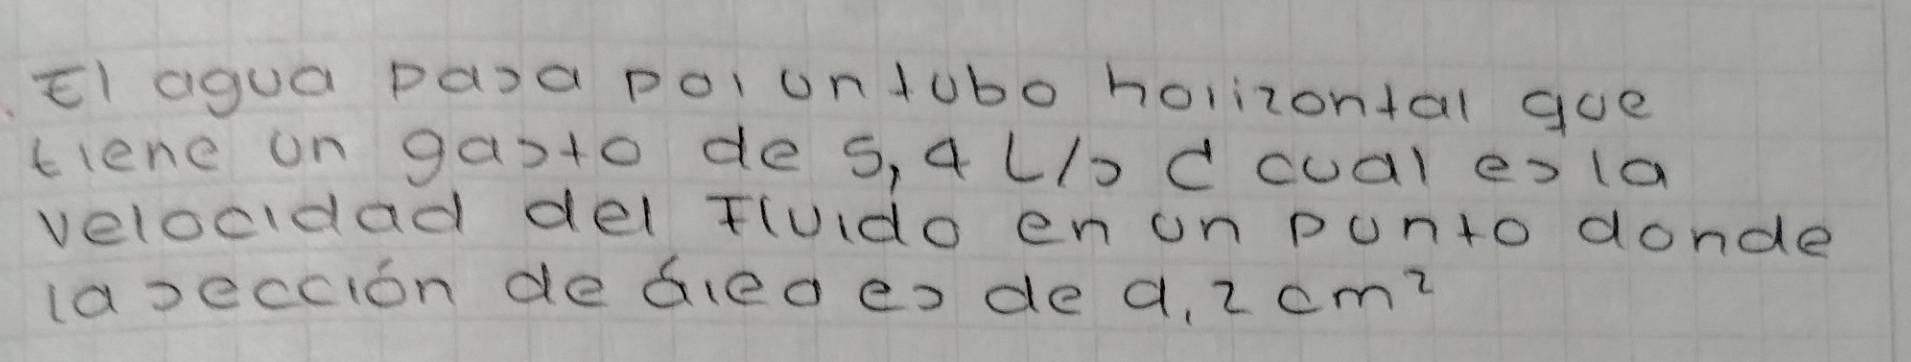 El agua pasa por un tubo horizontal que
tiene un gasto de 5,4 L/s ¿ cual es la
velocidad del Fluido en un punto donde
la sección de área es de 4,2 cm²